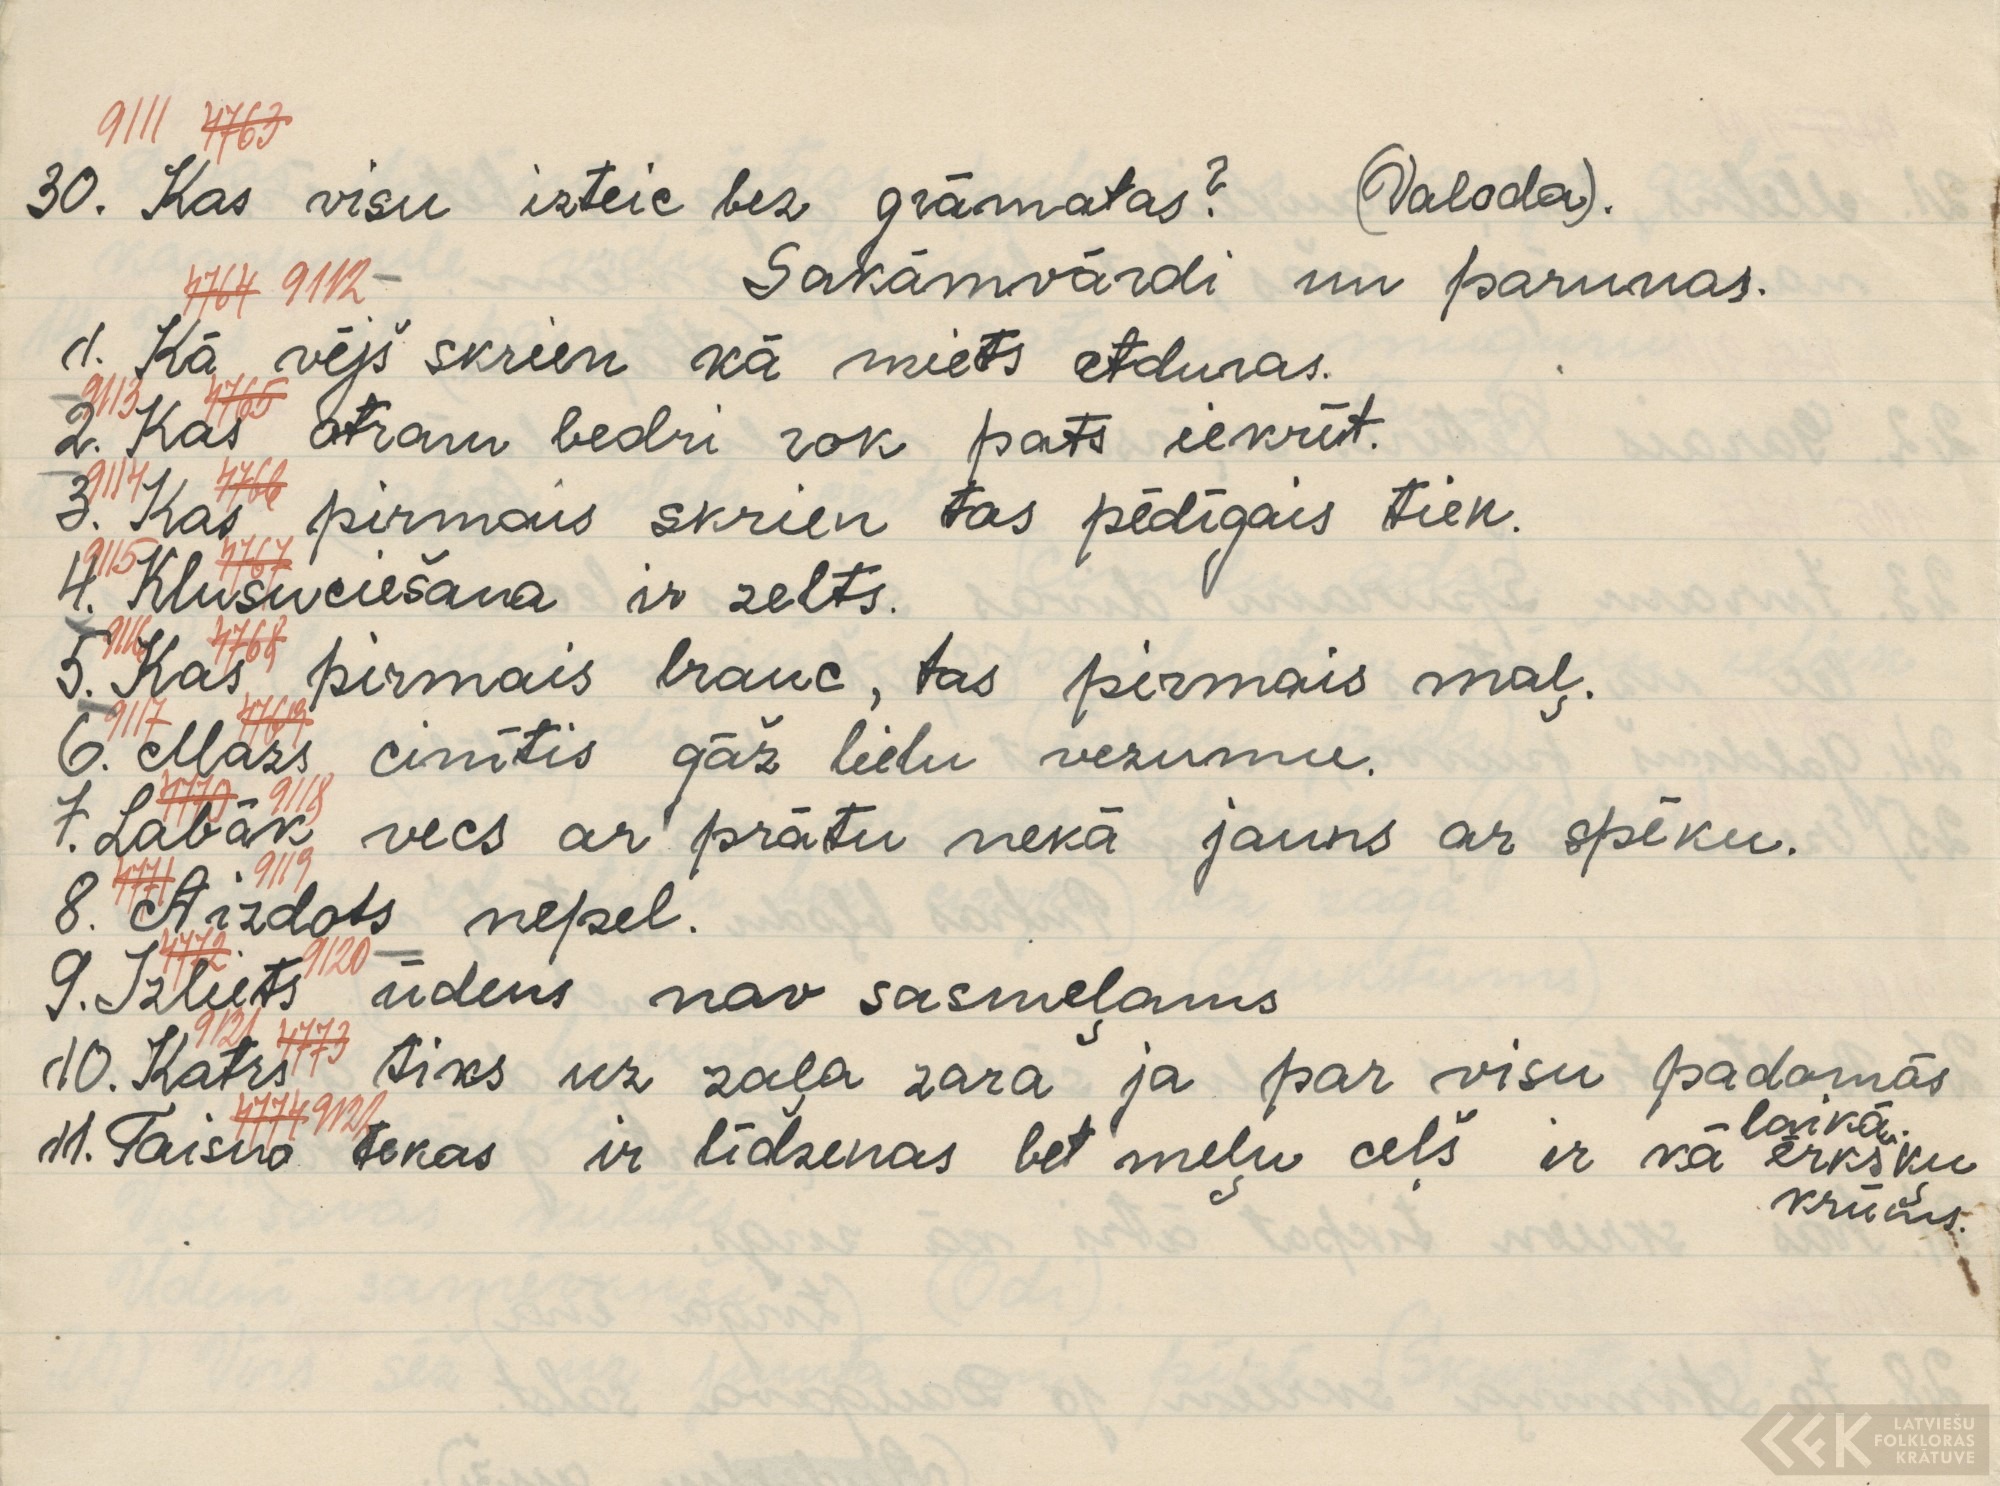 9111 4763
30. Kas visu izteic bez grāmatas? (Valoda).
4764 9112 Sakāmvārdi un parunas.
1. Kā vējš skrien kā miets atduras.
9113 4765
2. Kas otram bedri rok pats iekrīt.
9114 4766
3. Kas pirmais skrien tas pēdīgais tiek.
9115 4767
4. Klusuciešana ir zelts.
9116 4768
5. Kas pirmais brauc, tas pirmais maļ.
9117 4769
6. Mazs cinītis gāž lielu vezumu.
4770 9118
7. Labāk vecs ar prātu nekā jauns ar spēku.
4771 9119
8. Aizdots nepel.
4772 9120
9. Izliets ūdens nav sasmeļams
9121 4773
10. Katrs tiks uz zaļa zara ja par visu padomās
laikā.
4774 9122
11. Taisna tekas ir līdzenas bet meļu ceļš ir kā ērkšķu
krūms.
LATVIEŠU
FOLKLORAS
KRĀTUVE